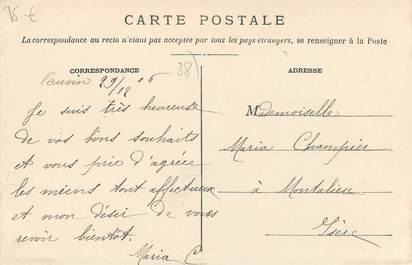 15 €
CARTE POSTALE
La correspondance au recto n'étant pas acceptée par tous les pays étrangers, se renseigner à la Poste
CORRESPONDANCE
38)
29/12 06
Je suis très heureuse
de vos bons souhaits
et vous prie d'agréer
les miens tout affectueux
et mon désir de vous
revoir bientôt.
Maria C.
ADRESSE
Mademoiselle
Maria Champier
à Montalieu
Isère